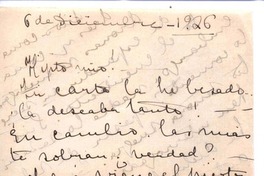 6 de Diciembre - 1926
mio:
Tu carta la he besado.
La deseaba tanto!
En cambio las mias
te sobran, verdad?